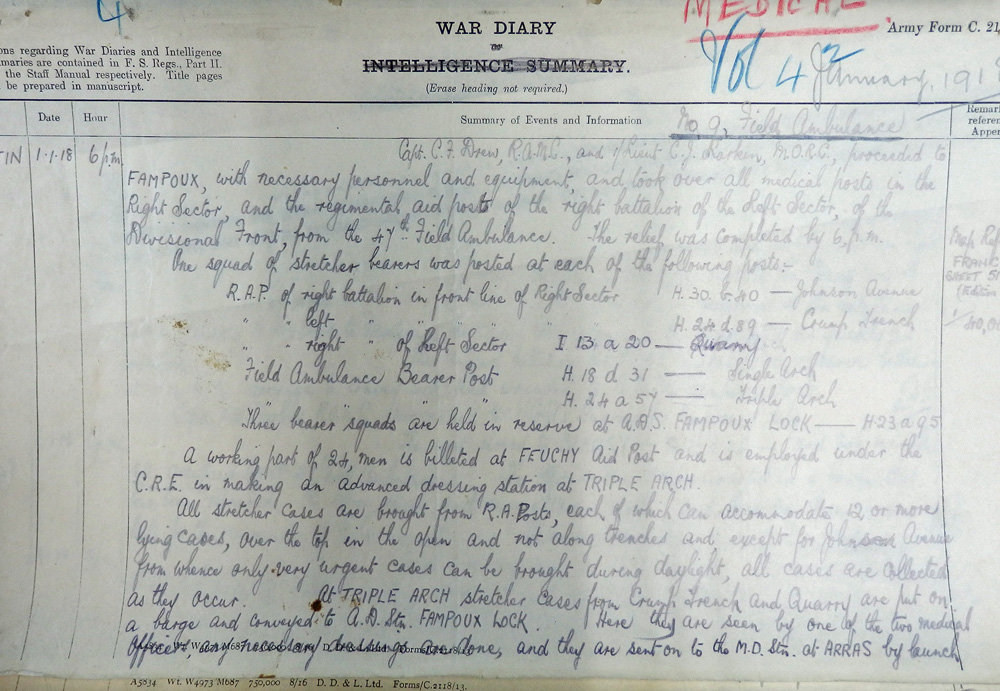 4
MEDICAL
WAR DIARY
or
INTELLIGENCE SUMMARY.
(Erase heading not required.)
Army Form C. 21
ons regarding War Diaries and Intelligence
maries are contained in F. S. Regs., Part II.
the Staff Manual respectively. Title pages
be prepared in manuscript.
Vol 42
January, 191
Date Hour Summary of Events and Information
No. 9, Field Ambulance
Remar
refere
Appen
TIN 1-1-18 6 p.m. Capt. C.F. Drew, R.A.M.C., and 1/Lieut C.J. Larkin, M.O.R.C., proceeded to
FAMPOUX, with necessary personnel and equipment, and took over all medical posts in the
Right Sector, and the regimental aid posts of the right battalion of the Left Sector, of the
Divisional Front, from the 47th Field Ambulance. The relief was completed by 6 p.m.
One squad of stretcher bearers was posted at each of the following posts:-
R.A.P. of right battalion in front line of Right Sector H. 30. b. 40 — Johnson Avenue
" " left " " " " H. 24 d. 89 — Crump Trench
" " right " of Left Sector I 13 a 20 — Quarry
Field Ambulance Bearer Post H. 18 d 31 — Single Arch
" " " H. 24 a 57 — Triple Arch
Three bearer squads are held in reserve at A.D.S. FAMPOUX LOCK — H 23 a 95
Map Ref
FRANC
SHEET 5
(Edition
1/40,0
A working part of 24, men is billeted at FEUCHY Aid Post and is employed under the
C.R.E. in making an advanced dressing station at TRIPLE ARCH.
All stretcher cases are brought from R.A. Posts, each of which can accommodate 12 or more
lying cases, over the top in the open and not along trenches and except for Johnson Avenue
from whence only very urgent cases can be brought during daylight, all cases are collected
as they occur. At TRIPLE ARCH stretcher cases from Crump Trench and Quarry are put on
a barge and conveyed to A.D. Stn. FAMPOUX LOCK. Here they are seen by one of the two medical
officers, any necessary dressings are done, and they are sent on to the M.D. Stn. at ARRAS by launch
A5834 Wt. W4973/M687 750,000 8/16 D. D. & L. Ltd. Forms/C.2118/13.